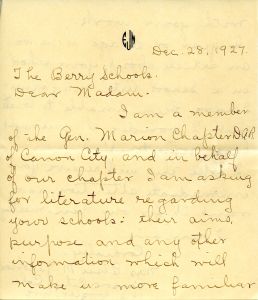 EJM
Dec. 28, 1927.
The Berry Schools.
Dear Madam.
I am a member
of the Gen. Marion Chapter D.A.R
of Canon City, and in behalf
of our chapter I am asking
for literature regarding
your schools: their aims,
purpose and any other
information which will
make us more familiar